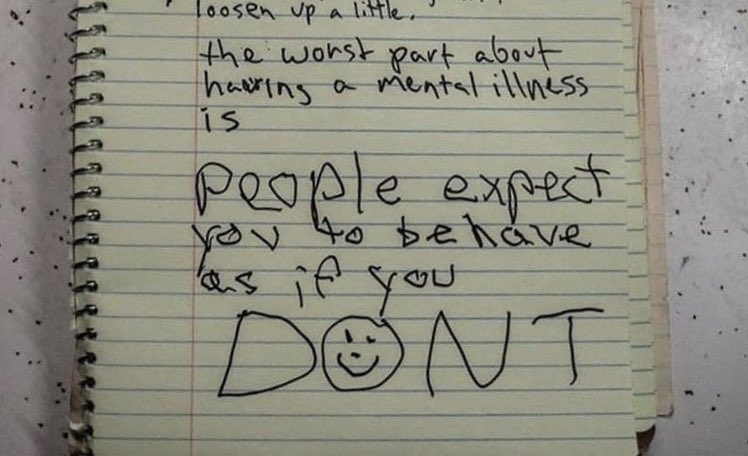 loosen up a little.
the worst part about
having a mental illness
is
people expect
you to behave
as if you
DONT